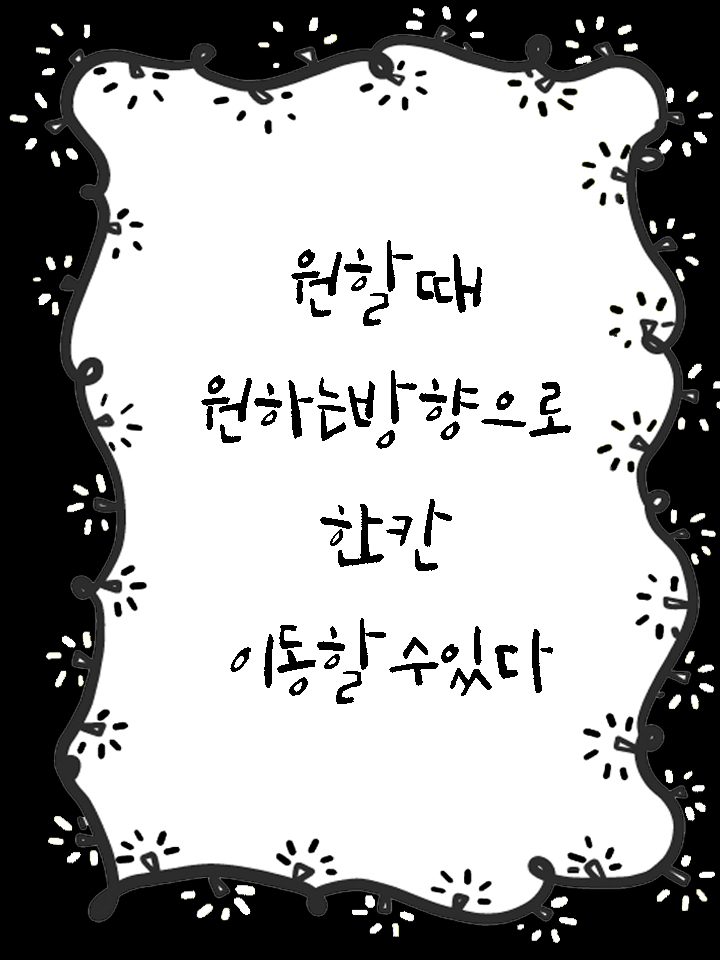 원할 때
원하는 방향으로
한 칸
이동할 수 있다